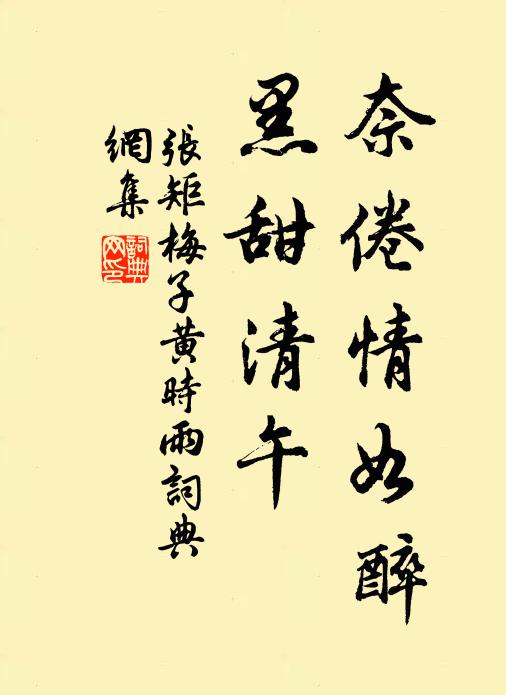 奈倦情如醉
黑甜清午
張矩梅子黄時雨詞典
網集
詞典
网印